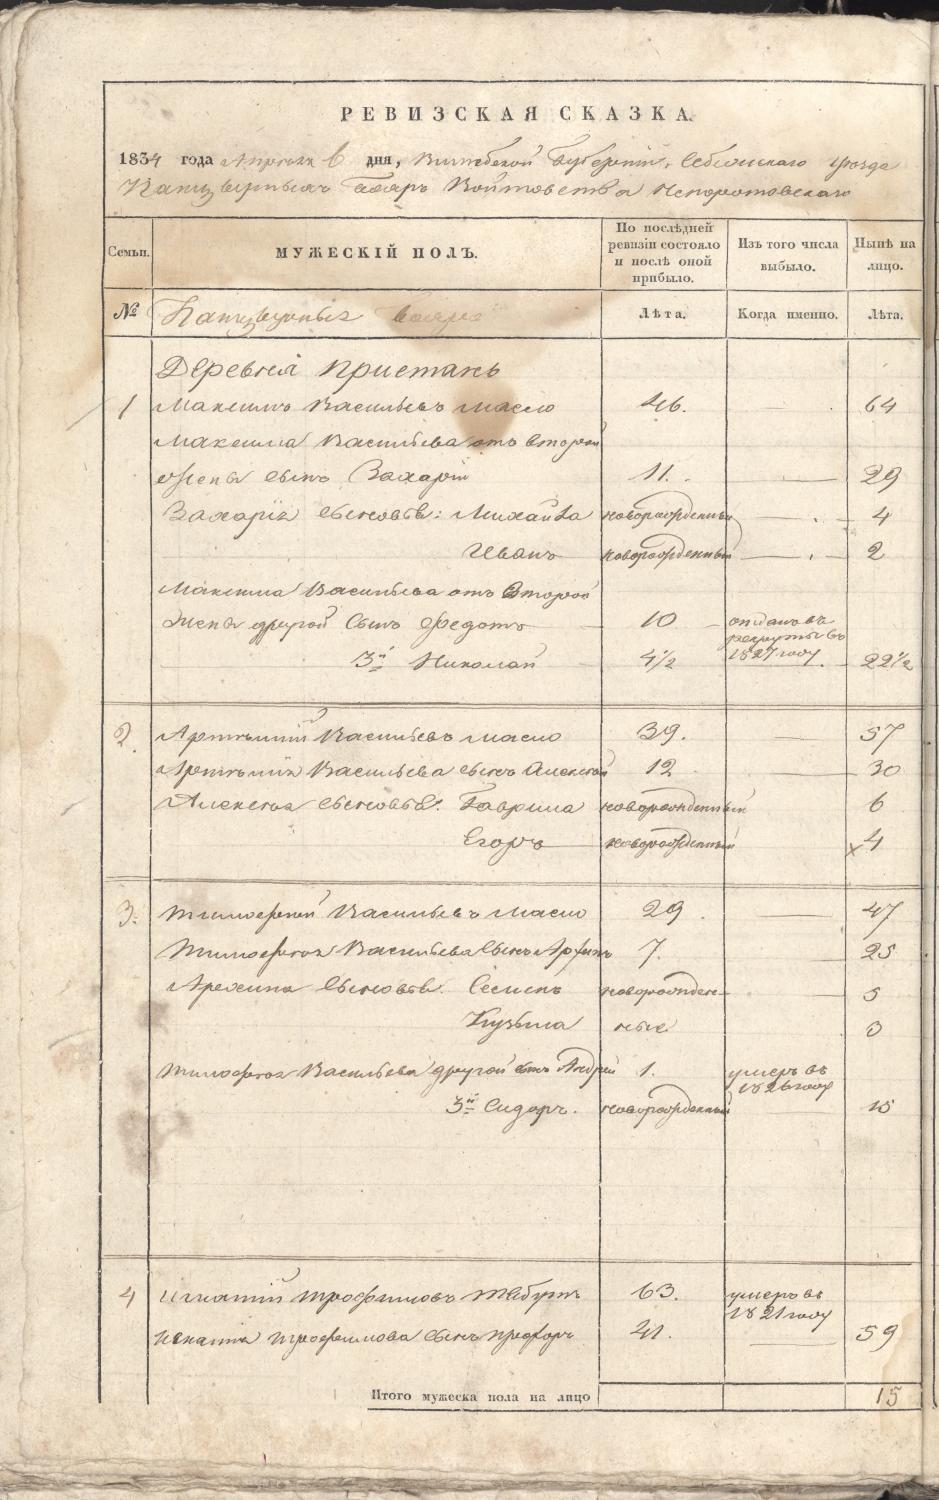 РЕВИЗСКАЯ СКАЗКА.
1834 года Апреля 6 дня, Витебской Губернiи, Себежскаго уѣзда
Панцерныхъ Бояръ Войтовства Непоротовскаго
Семьи.
МУЖЕСКIЙ ПОЛЪ.
По послѣдней ревизiи состояло и послѣ оной прибыло.
Изъ того числа выбыло.
Нынѣ на лицо.
№
Панцерныхъ Бояръ
Лѣта.
Когда именно.
Лѣта.
Деревня Пристань
1 Максимъ Васильевъ Масло 46. 64
Максима Васильева отъ второй
жены сынъ Захарiй 11. 29
Захарiя сыновья: Михайла новорожденный 4
Иванъ новорожденный 2
Максима Васильева отъ второй
жены другой сынъ Федотъ 10 отданъ въ рекруты въ 1827 году
3й Николай 4½ 22½
2. Артемiй Васильевъ Масло 39. 57
Артемiя Васильева сынъ Алексей 12 30
Алексея сыновья: Гаврила новорожденный 6
Егоръ новорожденный 4
3. Тимофей Васильевъ Масло 29. 47
Тимофея Васильева сынъ Архипъ 7. 25
сыновья. новорожден- 5
Кузьма ные 3
Тимофея Васильева другой сынъ Андрей 1. умеръ въ 1826 году
3й Сидоръ. новорожденный 15
4 Игнатiй Трофимовъ 63. умеръ въ 1821 году
Игнатiя Трофимова сынъ 41. 59
Итого мужеска пола на лицо 15